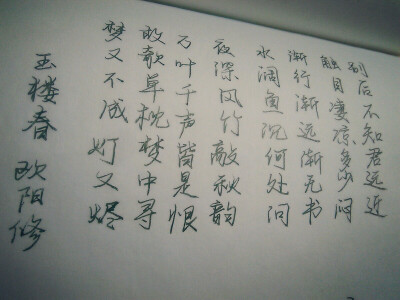 别后不知君远近
触目凄凉多少闷
渐行渐远渐无书
水阔鱼沉何处问
夜深风竹敲秋韵
万叶千声皆是恨
故欹单枕梦中寻
梦又不成灯又烬
玉楼春 欧阳修